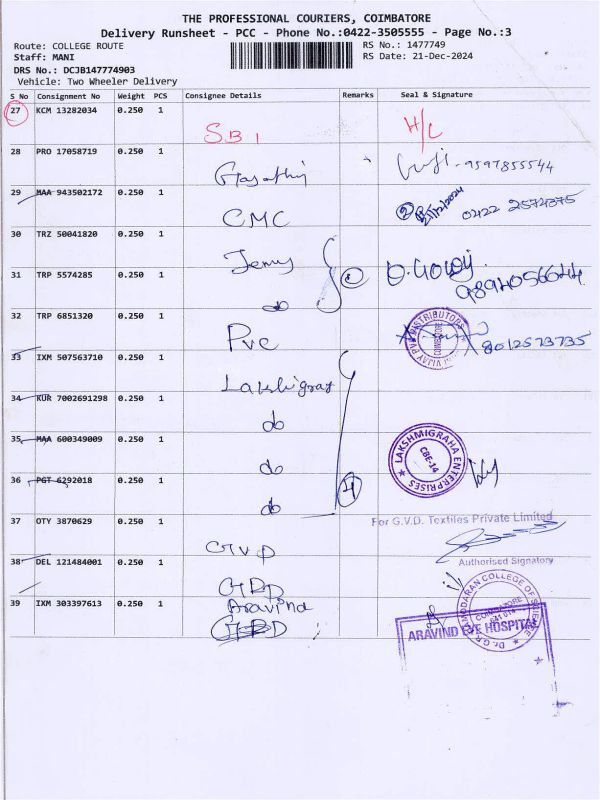 THE PROFESSIONAL COURIERS, COIMBATORE
Delivery Runsheet - PCC - Phone No.:0422-3505555 - Page No.:3
Route: COLLEGE ROUTE
RS No.: 1477749
Staff: MANI
RS Date: 21-Dec-2024
DRS No.: DCJB147774903
Vehicle: Two Wheeler Delivery
S No Consignment No Weight PCS Consignee Details Remarks Seal & Signature
27 KCM 13282034 0.250 1 SBI H/L
28 PRO 17058719 0.250 1 9597855544
29 MAA 943502172 0.250 1 CMC 2 21/12/2024 0422 2574375
30 TRZ 50041820 0.250 1 Jenny
31 TRP 5574285 0.250 1 do 2 9894056644
32 TRP 6851320 0.250 1 Pvc VIJAY PVC DISTRIBUTORS COIMBATORE 8012573735
33 IXM 507563710 0.250 1
34 KUR 7002691298 0.250 1 do
35 MAA 600349009 0.250 1 do LAKSHMIGRAHA ENTERPRISES CBE-14
36 PGT 6292018 0.250 1 do 4
37 OTY 3870629 0.250 1 GVD For G.V.D. Textiles Private Limited
Authorised Signatory
38 DEL 121484001 0.250 1 GRD
39 IXM 303397613 0.250 1 Aravind ARAVIND EYE HOSPITAL